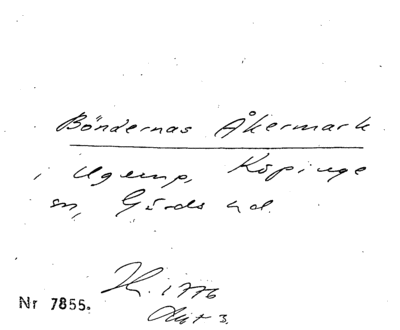 Böndernas Åkermark
i Ugerup, Köpinge
sn, Gärds hd.
H. 1776
Akt 3.
Nr 7855.